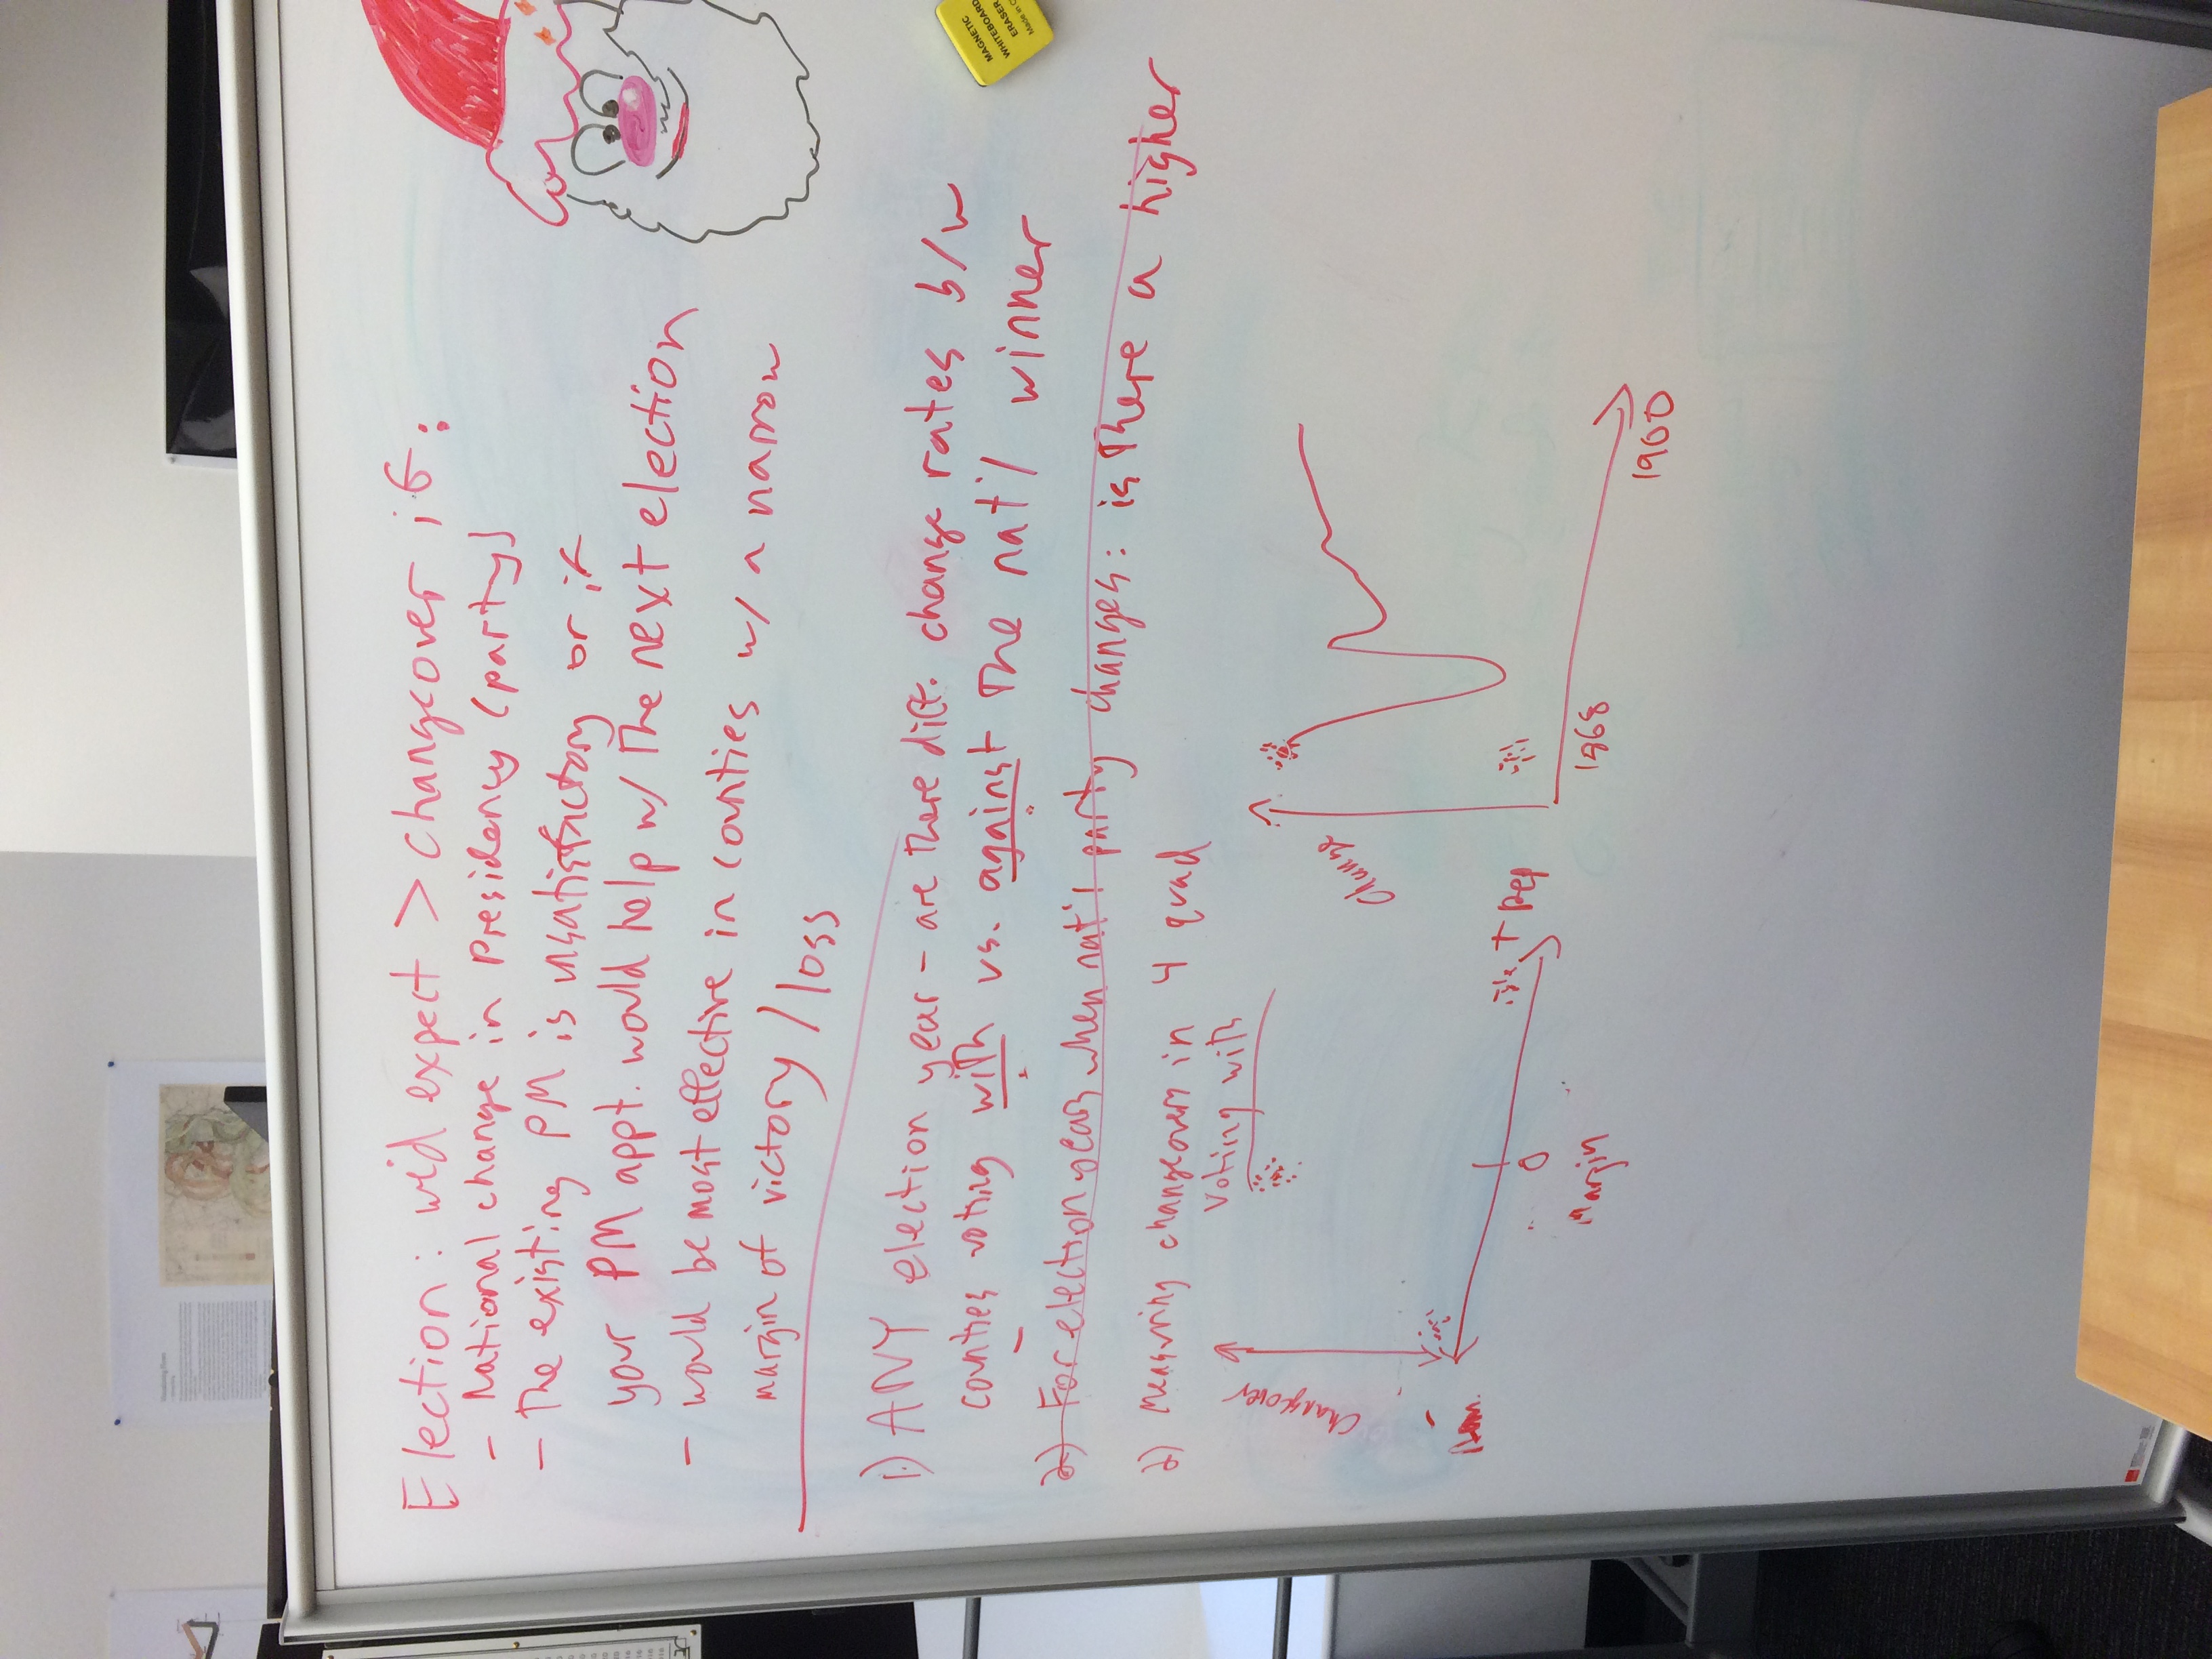 Election: we'd expect > changeover if:
- National change in Presidency (party)
- The existing PM is unsatisfactory or if
your PM appt. would help w/ the next election
- would be most effective in counties w/ a narrow
margin of victory / loss
1) ANY election year - are there diff. change rates b/w
counties voting with vs. against the nat'l winner
2) For election years when nat'l party changes: is there a higher
2) Measuring changeovers in 4 quad
Voting with
Changeover
-
0
+ Rep
Margin
Change
1868
1900
MAGNETIC
WHITEBOARD
ERASER
Made in